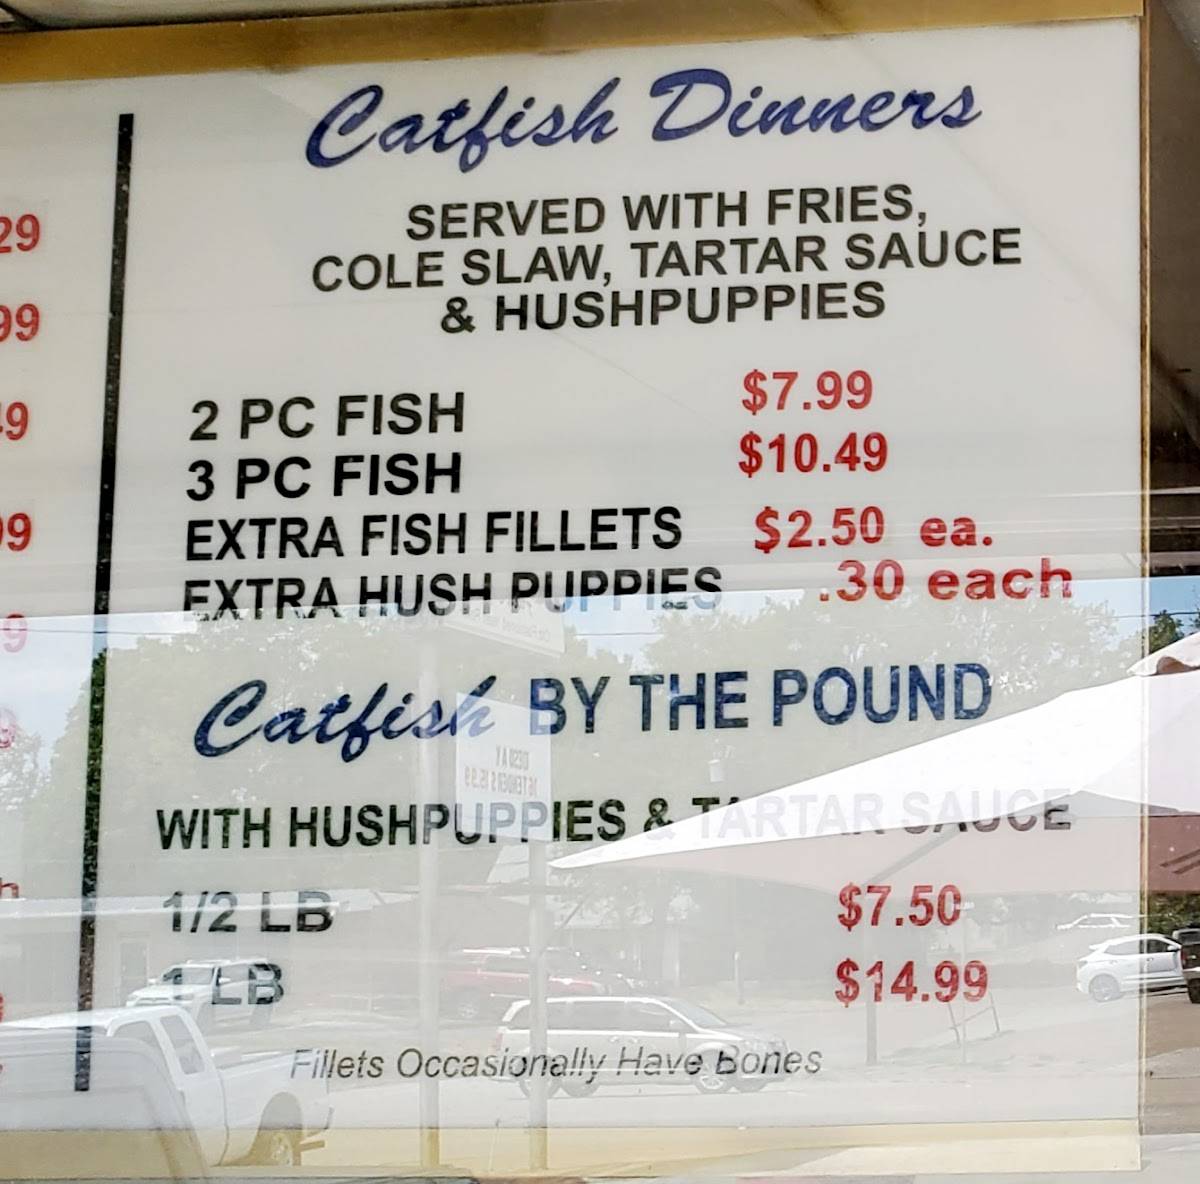 Catfish Dinners
SERVED WITH FRIES,
COLE SLAW, TARTAR SAUCE
& HUSHPUPPIES
2 PC FISH $7.99
3 PC FISH $10.49
EXTRA FISH FILLETS $2.50 ea.
EXTRA HUSH PUPPIES .30 each
Catfish BY THE POUND
WITH HUSHPUPPIES & TARTAR SAUCE
1/2 LB $7.50
1 LB $14.99
Fillets Occasionally Have Bones
29
99
49
99
9